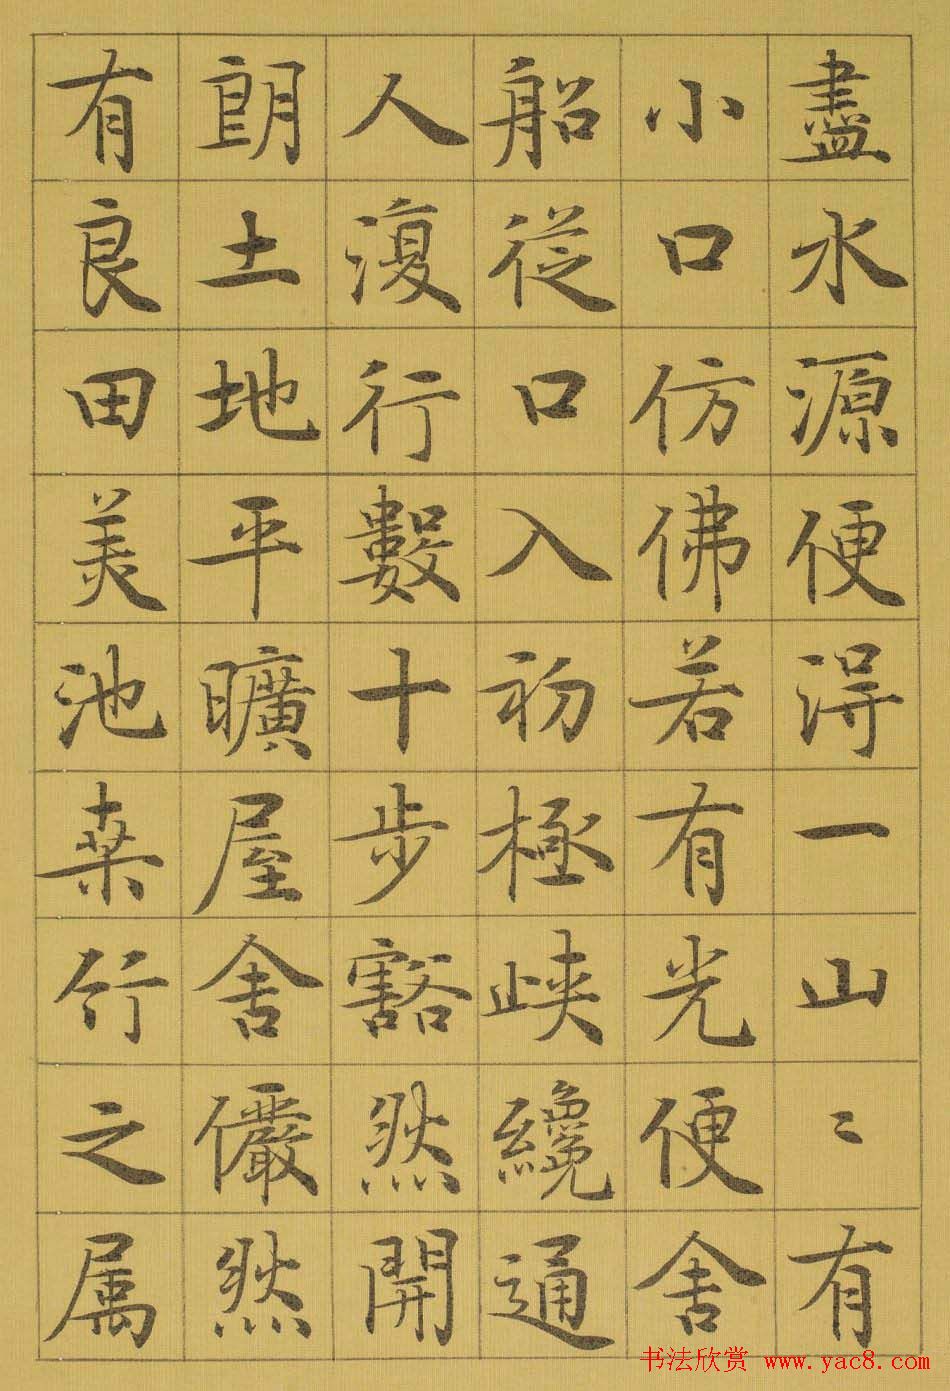 盡水源便得一山〻有
小口仿佛若有光便舍
船從口入初極峡纔通
人復行數十步豁然開
朗土地平曠屋舍儼然
有良田美池桒竹之属
书法欣赏 www.yac8.com